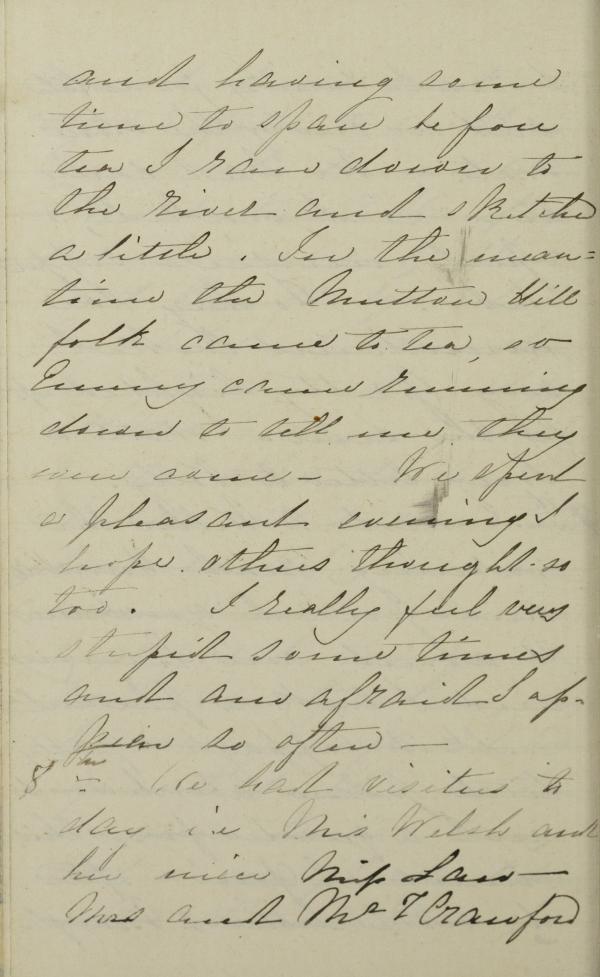 and having some
time to spare before
tea I ran down to
the river and sketched
a little. In the mean=
time the Mutton Hill
folk came to tea, so
Emmy came running
down to tell me they
were come - We spent
a pleasant evening I
hope. others thought so
too. I really feel very
stupid some times
and am afraid I ap-
pear so often -
8th We had visitors to
day i.e Mrs Welsh and
her niece Miss Law -
Mrs and Mr T Crawford